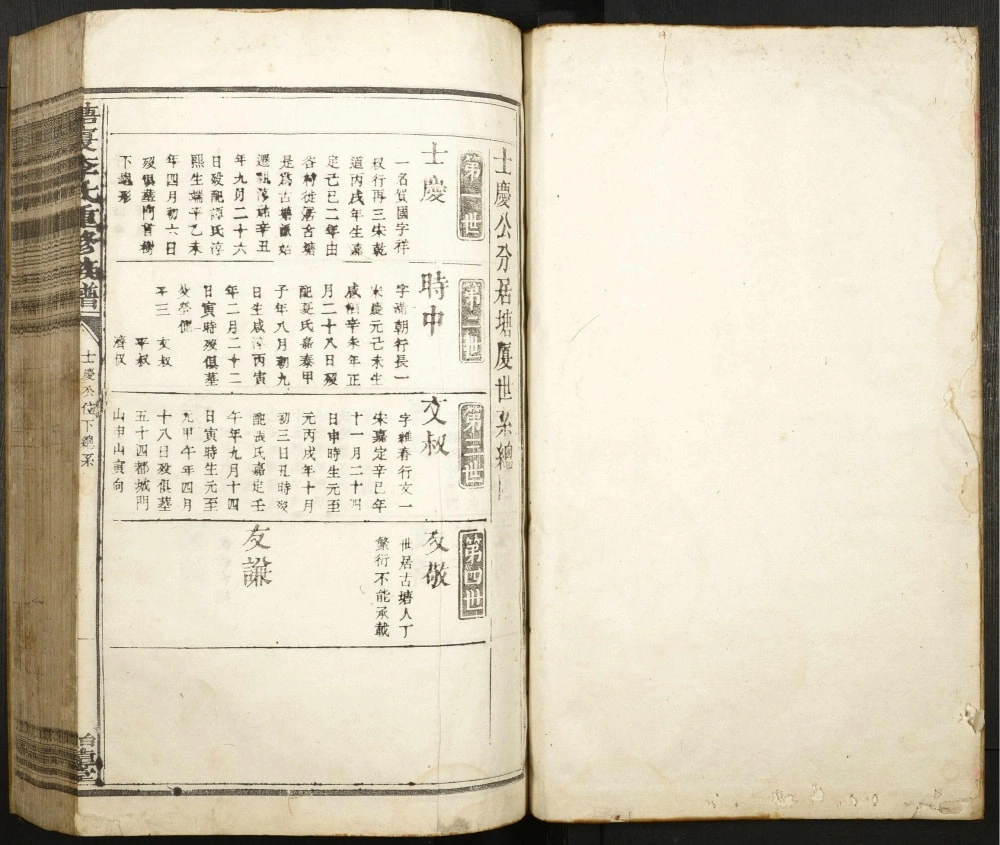 士慶公分居塘厦世系總
第一世
士慶
一名賀國字祥
叔行再三宋乾
道丙戌年生嘉
定己巳二年由
谷村徙居古塘
是爲古塘鼻始
遷祖淳祐辛丑
年九月二十六
日殁配譚氏淳
熙生端平乙未
年四月初六日
殁俱墓門官樹
下塊形
第二世
時中
字滿朝行長一
宋慶元己未生
咸淳辛未年正
月二十八日殁
配夏氏嘉泰甲
子年八月初九
日生咸淳丙寅
年二月二十二
日寅時殁俱墓
父塋側
子三
友叔
平叔
濟叔
第三世
文叔
字維春行文一
宋嘉定辛巳年
十一月二十四
日申時生元至
元丙戌年十月
初三日丑時殁
配袁氏嘉定壬
午年九月十四
日寅時生元至
元甲午年四月
十八日殁俱墓
五十四都城門
山申山寅向
第四世
友敬
世居古塘人丁
繁衍不能承載
友謙
塘厦李氏重修族譜
士慶公位下總系